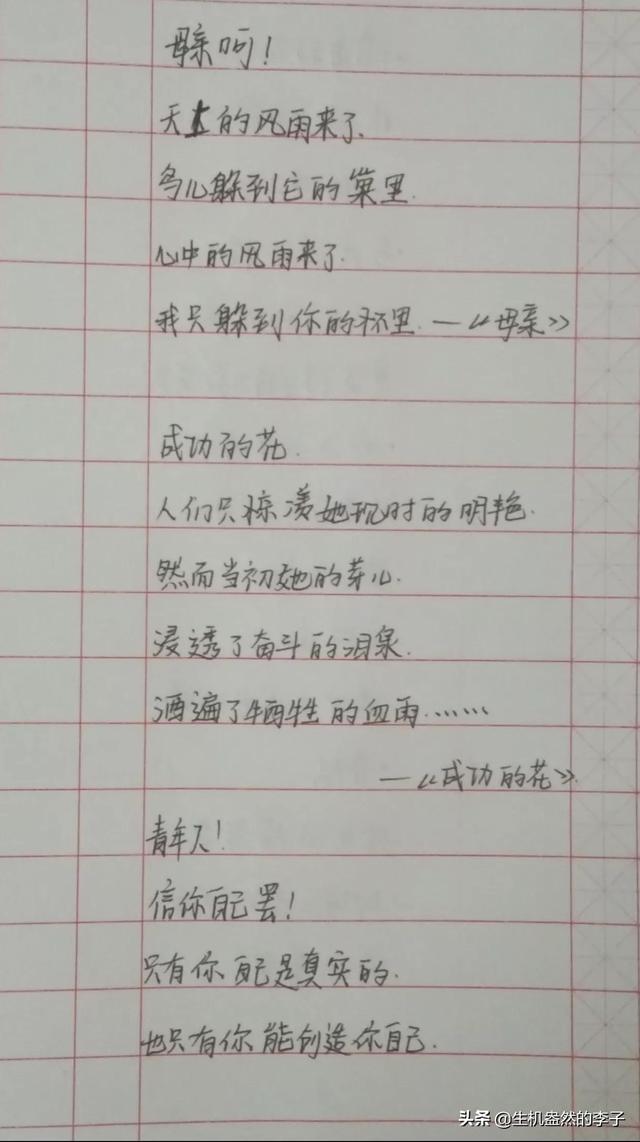 母亲呵！
天上的风雨来了.
鸟儿躲到它的巢里.
心中的风雨来了.
我只躲到你的怀里.—《母亲》
成功的花.
人们只惊羡她现时的明艳.
然而当初她的芽儿.
浸透了奋斗的泪泉.
洒遍了牺牲的血雨……
—《成功的花》.
青年人！
信你自己罢！
只有你自己是真实的.
也只有你能创造你自己.
头条 @生机盎然的李子